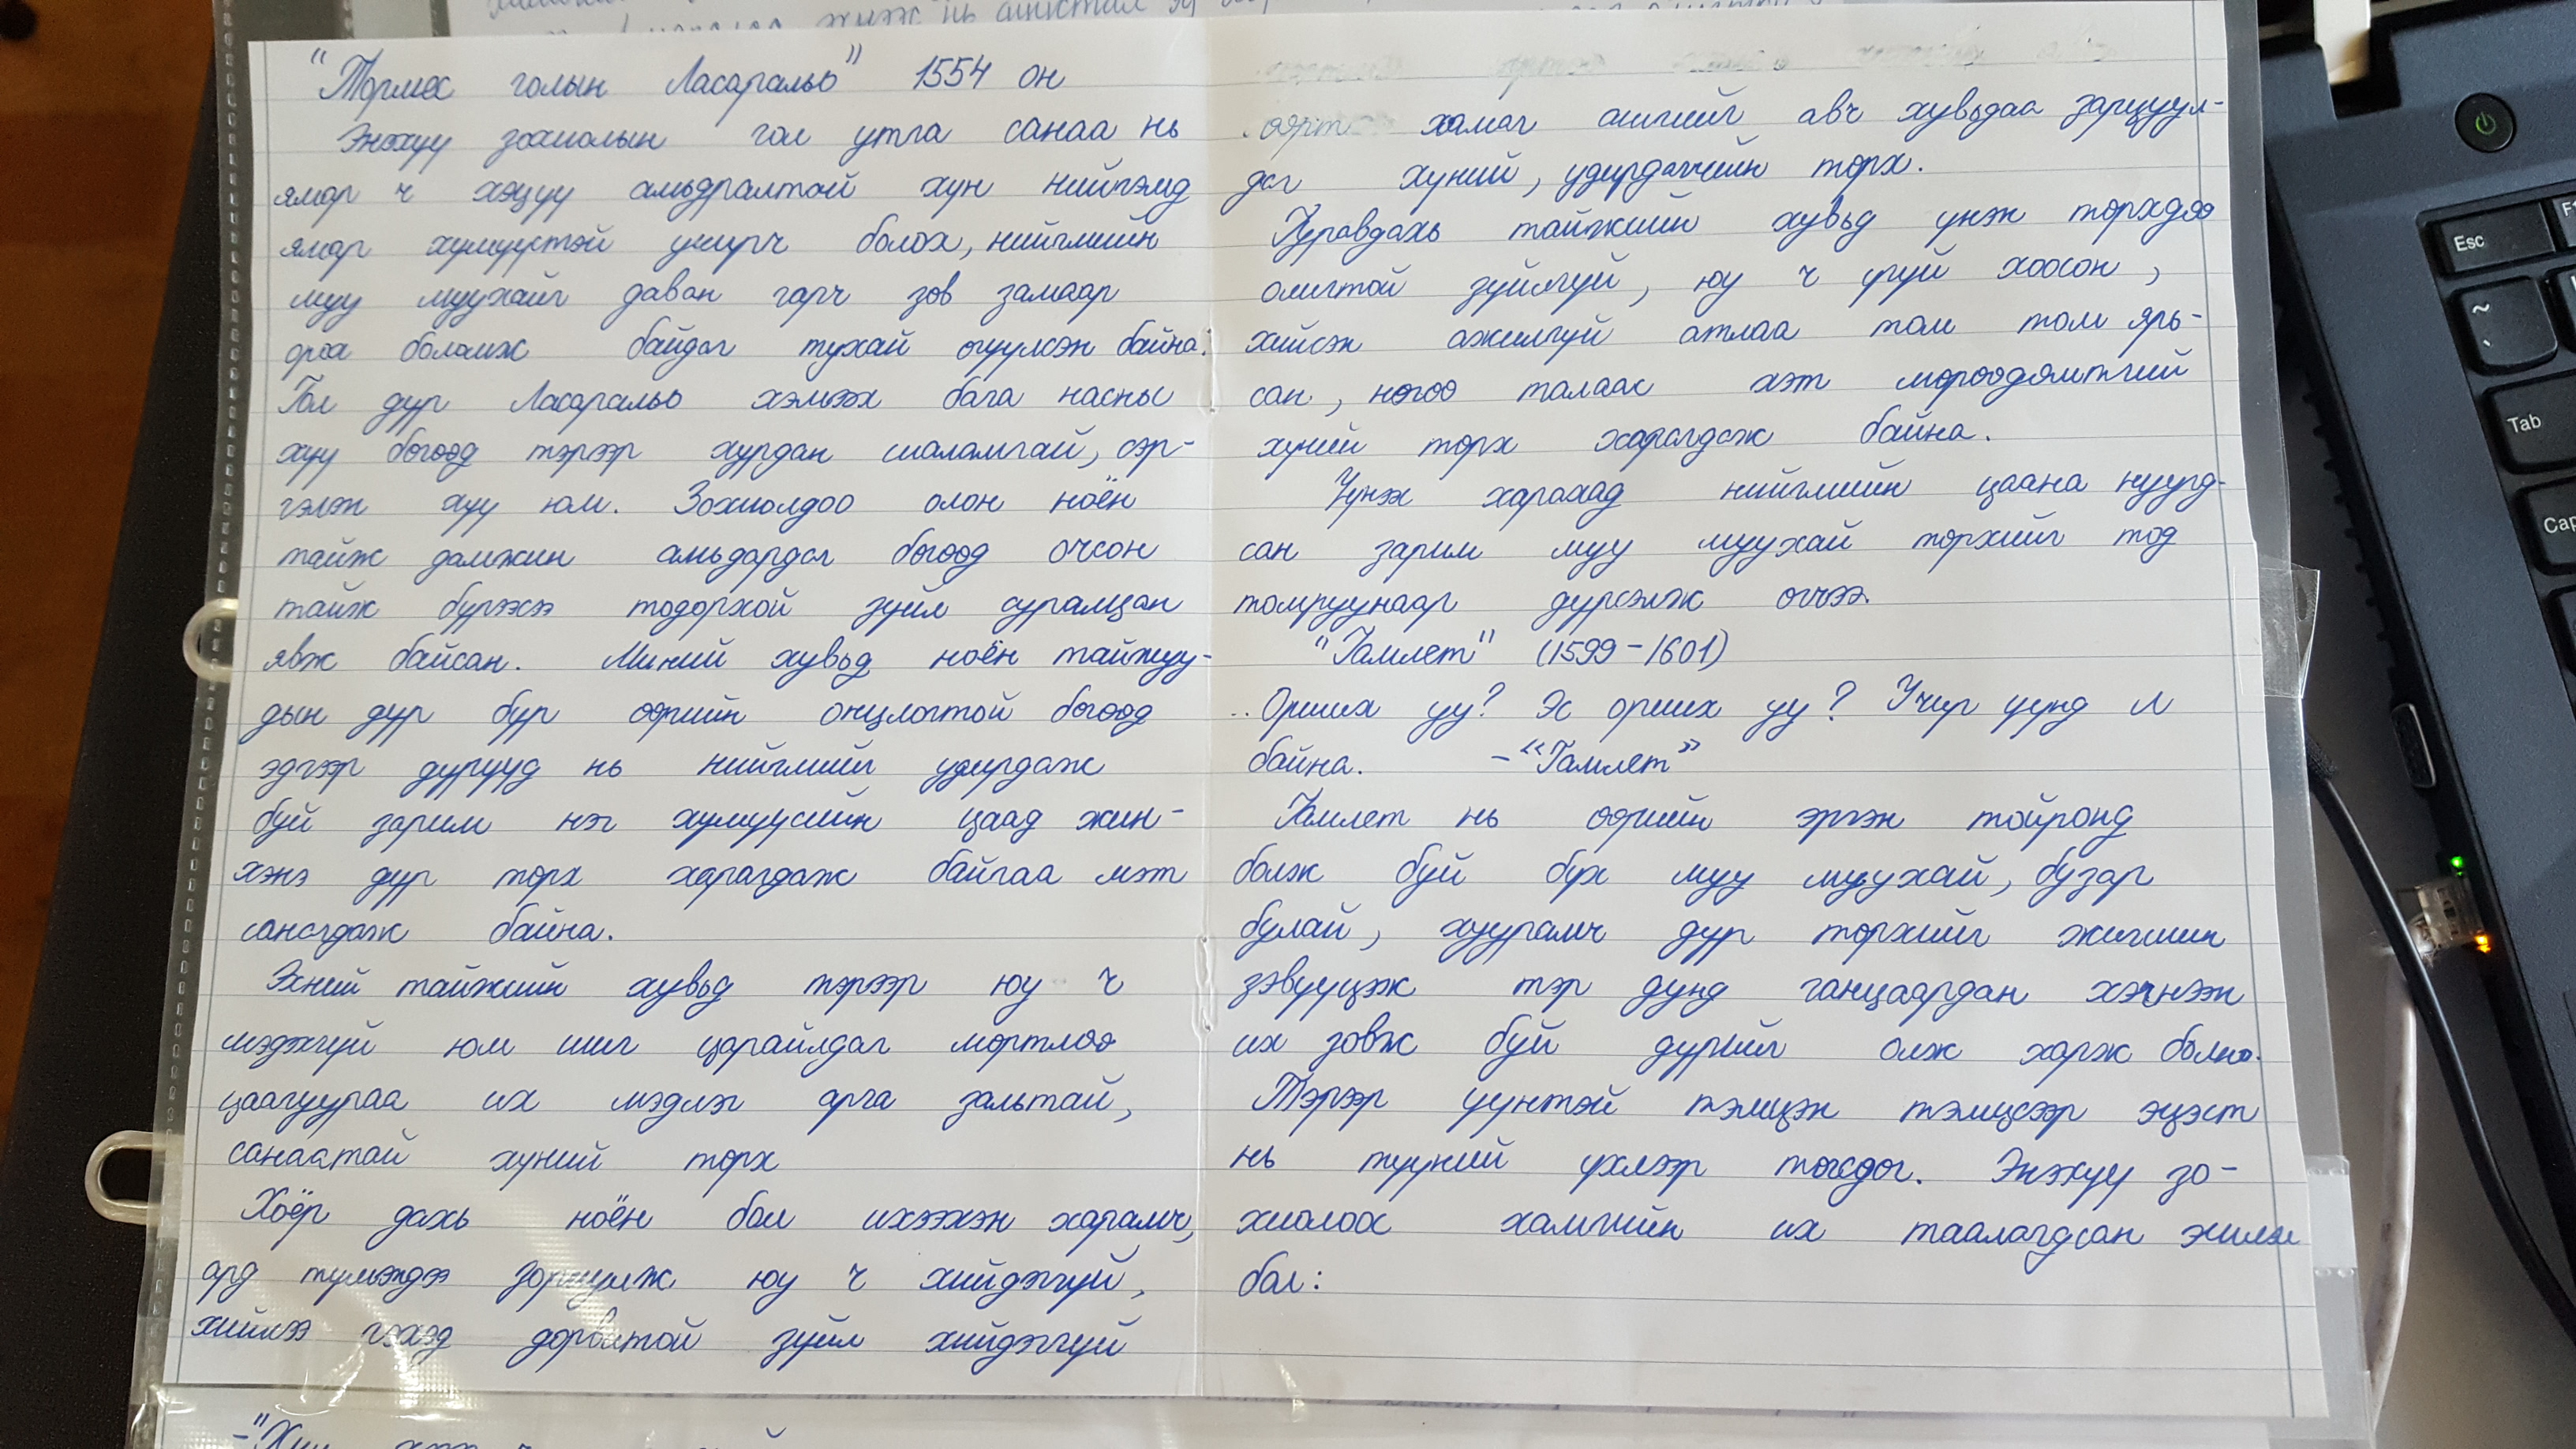 "Тормес голын Ласаральо" 1554 он
Энэхүү зохиолын гол утга санаа нь
ямар ч хэцүү амьдралтай хүн нийгэмд
ямар хүмүүстэй учирч болох, нийгмийн
муу муухайг даван гарч зөв замаар
орох боломж байдаг тухай өгүүлсэн байна.
Гол дүр Ласаральо хэмээх бага насны
хүү бөгөөд тэрээр хурдан шаламгай, сэр-
гэлэн хүү юм. Зохиолдоо олон ноён
тайж дамжин амьдардаг бөгөөд очсон
тайж бүрээсээ тодорхой зүйл суралцан
явж байсан. Миний хувьд ноён тайжуу-
дын дүр бүр өөрийн онцлогтой бөгөөд
эдгээр дүрүүд нь нийгмийг удирдаж
буй зарим нэг хүмүүсийн цаад жин-
хэнэ дүр төрх харагдаж байгаа мэт
санагдаж байна.
Эхний тайжийн хувьд тэрээр юу ч
мэдэхгүй юм шиг царайлдаг мөртлөө
цаагуураа их мэдлэг арга зальтай,
санаатай хүний төрх
Хоёр дахь ноён бол ихээхэн харамч,
ард түмэндээ зориулж юу ч хийдэггүй,
хийлээ гэхэд дорвитой зүйл хийдэггүй
хамаг ашгийг авч хувьдаа зарцуул-
даг хүний, удирдагчийн төрх.
Гуравдахь тайжийн хувьд үнэн төрхдөө
олигтой зүйлгүй, юу ч үгүй хоосон,
хийсэн ажилгүй атлаа том том ярь-
сан, нөгөө талаас хэт мөрөөдөмтгий
хүний төрх харагдаж байна.
Үүнээс харахад нийгмийн цаана нуугд-
сан зарим муу муухай төрхийг тод
томруунаар дүрсэлж өгчээ.
"Гамлет" (1599-1601)
..Орших уу? Эс орших уу? Учир үүнд л
байна. -"Гамлет"
Гамлет нь өөрийн эргэн тойронд
болж буй бүх муу муухай, бузар
булай, хуурамч дүр төрхийг жигшин
зэвүүцэж тэр дунд ганцаардан хэчнээн
их зовж буй дүрийг олж харж болно.
Тэрээр үүнтэй тэмцэн тэмцсээр эцэст
нь түүний үхлээр төгсдөг. Энэхүү зо-
хиолоос хамгийн их таалагдсан эшлэл
бол: